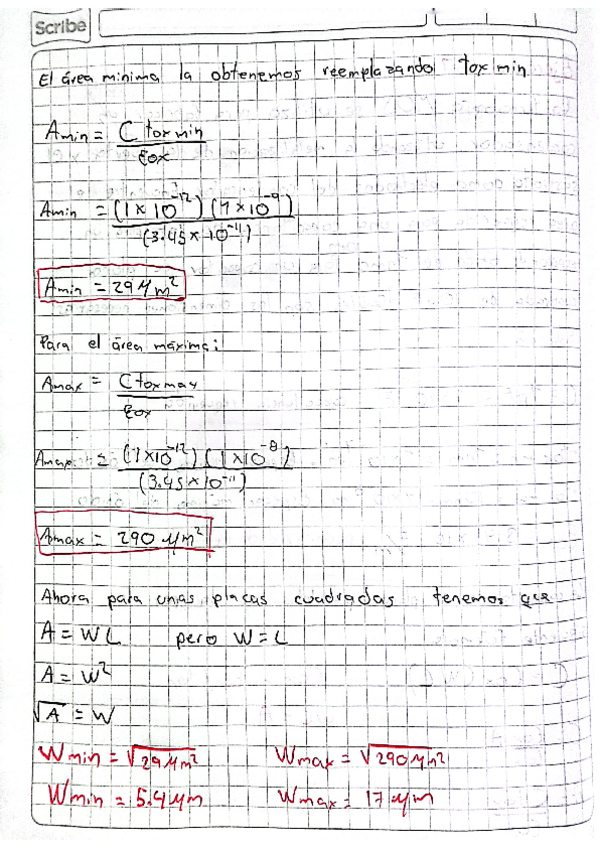 Scribe
El área minima la obtenemos reemplazando tox min
Amin = C tox min / εox
Amin = (1 x 10^-12) (1 x 10^-9) / (3.45 x 10^-11)
Amin = 29 μm²
Para el área maxima:
Amax = C tox max / εox
Amax = (1x10^-12) (1 x 10^-8) / (3.45 x 10^-11)
Amax = 290 μm²
Ahora para unas placas cuadradas tenemos que
A = WL pero W = L
A = W²
√A = W
Wmin = √29 μm² Wmax = √290 μm²
Wmin = 5.4 μm Wmax = 17 μm